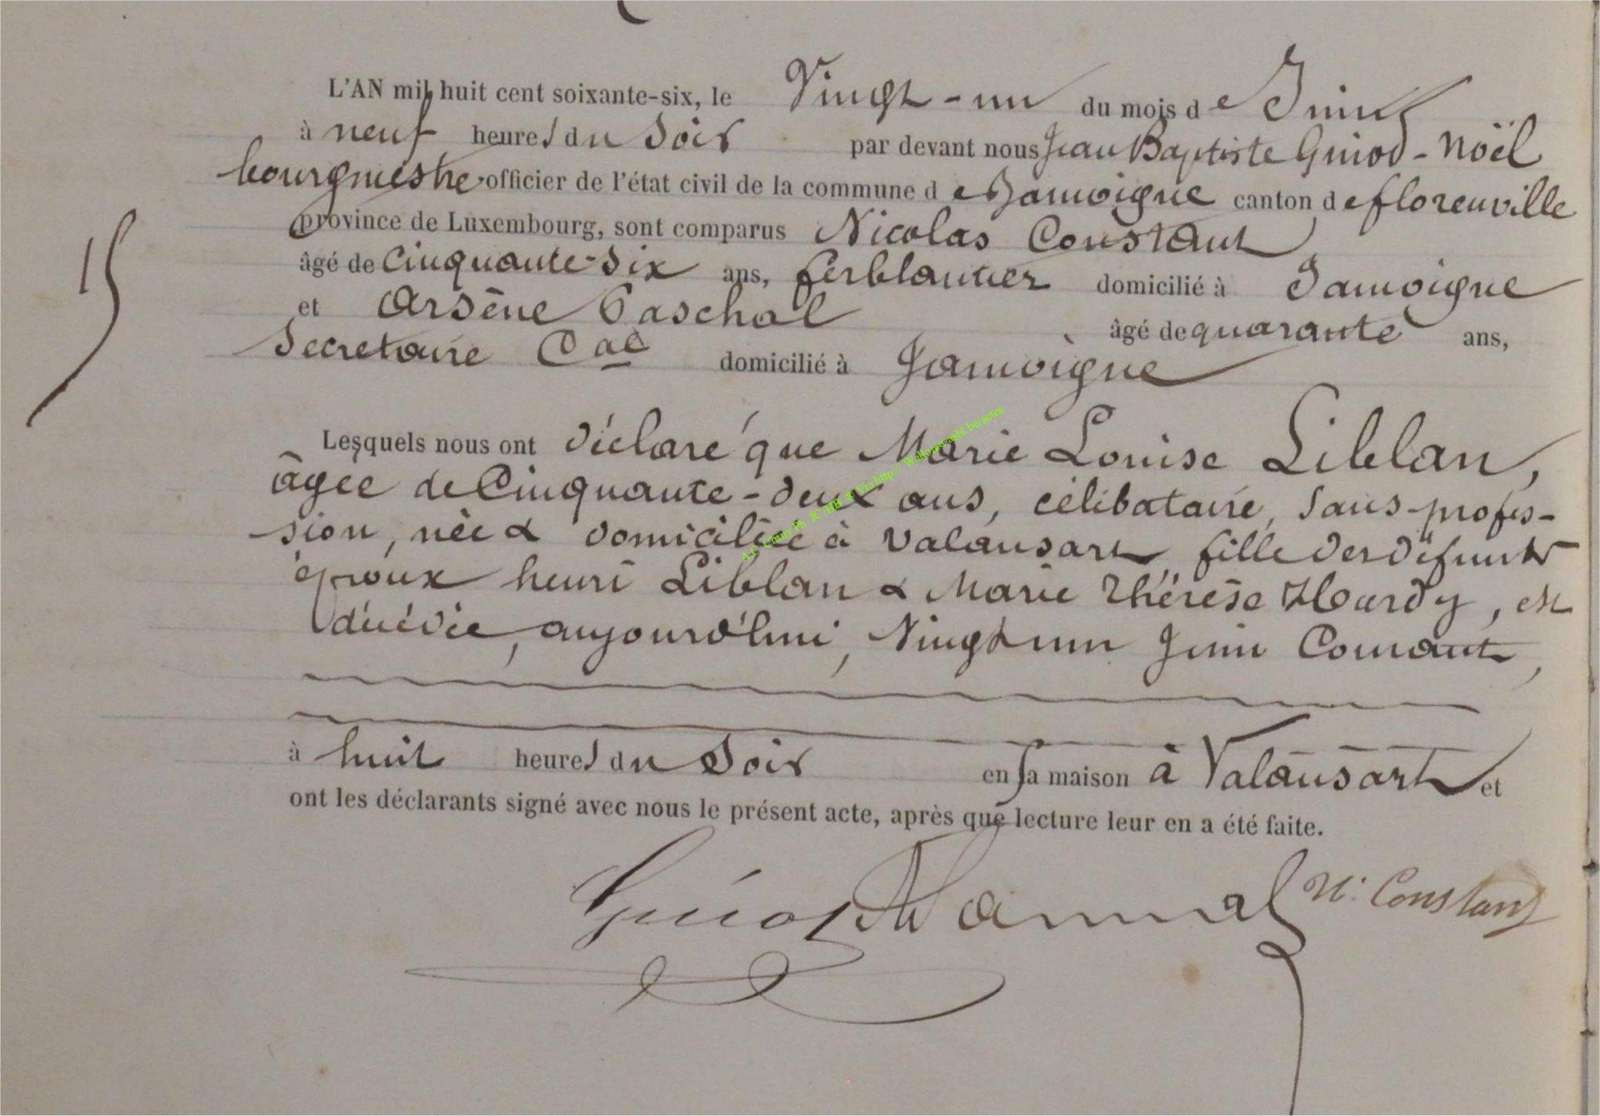 L'AN mil huit cent soixante-six, le Vingt-un du mois de Juin
à neuf heures du Soir par devant nous Jean Baptiste Guiot-Noël
bourgmestre officier de l'état civil de la commune de Jamoigne canton de florenville
province de Luxembourg, sont comparus Nicolas Constant
âgé de Cinquante-six ans, ferblantier domicilié à Jamoigne
15
et Arsène Paschal âgé de quarante ans,
Secretaire Cal domicilié à Jamoigne
Lesquels nous ont déclaré que Marie Louise Liblan,
âgée de Cinquante-deux ans, célibataire, sans profes-
sion, née & domiciliée à Valansart, fille des défunts
époux henri Liblan & Marie Thérèse Hardy, est
décédée, aujourd'hui, Vingt un Juin Courant,
à huit heures du Soir en sa maison à Valansart et
ont les déclarants signé avec nous le présent acte, après que lecture leur en a été faite.
Guiot N. Constant